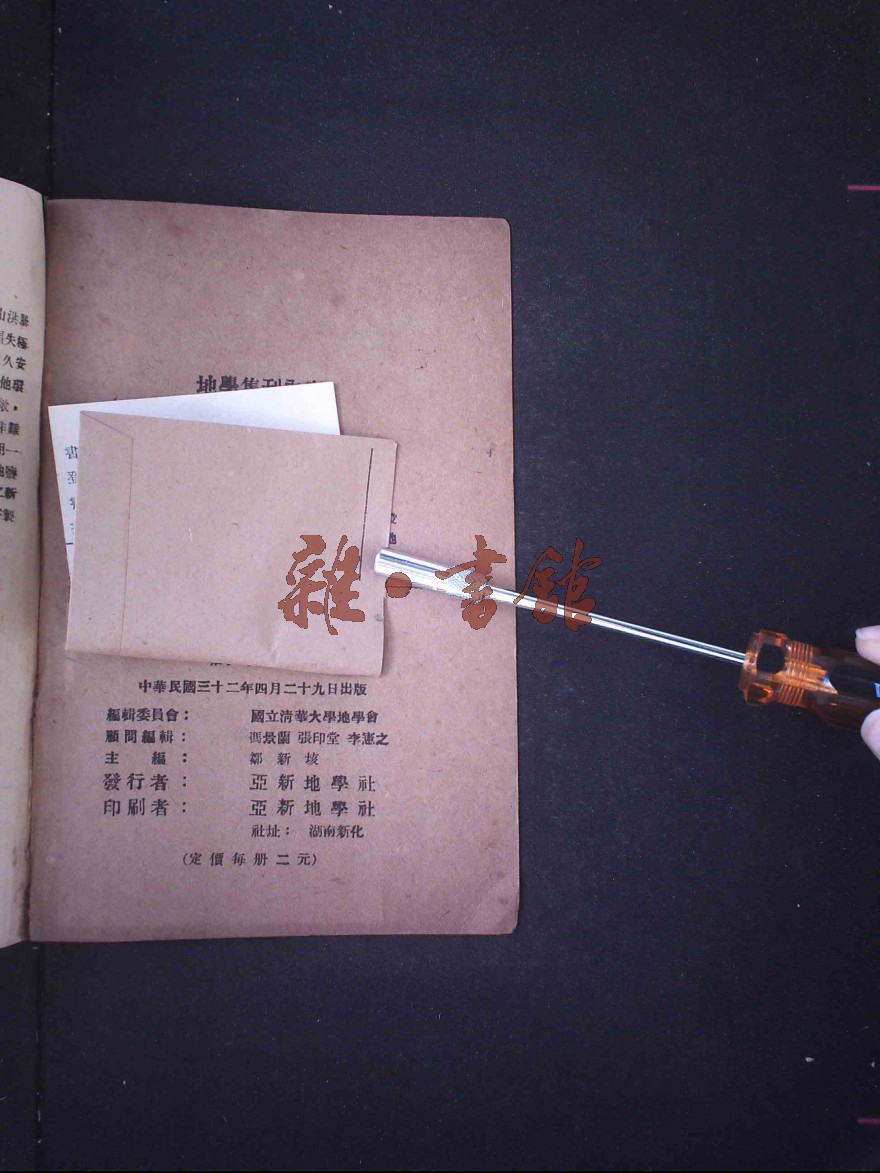 山洪暴
失極
久安
他環
難
地學集刊
雜·書館
中華民國三十二年四月二十九日出版
編輯委員會： 國立清華大學地學會
顧問編輯： 馮景蘭 張印堂 李憲之
主編： 鄒新垓
發行者： 亞新地學社
印刷者： 亞新地學社
社址： 湖南新化
(定價每册二元)